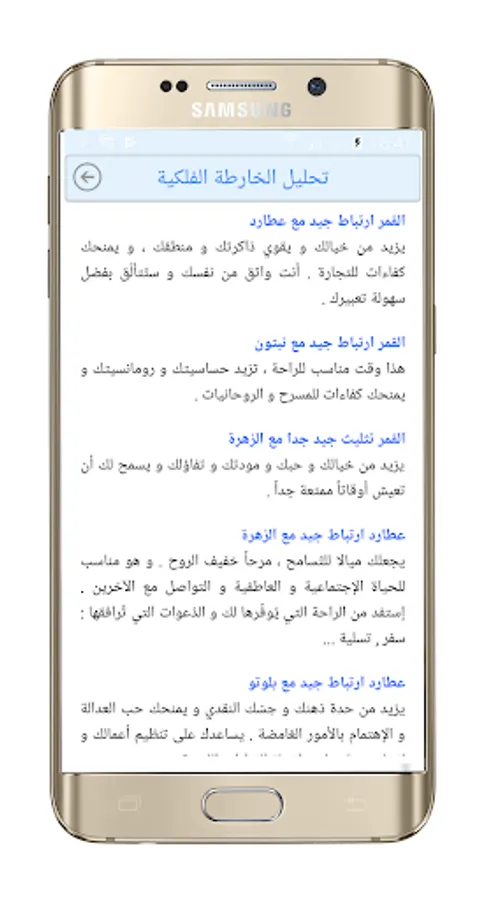 SAMSUNG
تحليل الخارطة الفلكية
القمر ارتباط جيد مع عطارد
يزيد من خيالك و يقوي ذاكرتك و منطقك ، و يمنحك
كفاءات للتجارة . أنت واثق من نفسك و ستتألق بفضل
سهولة تعبيرك .
القمر ارتباط جيد مع نبتون
هذا وقت مناسب للراحة ، تزيد حساسيتك و رومانسيتك و
يمنحك كفاءات للمسرح و الروحانيات .
القمر تثليث جيد جدا مع الزهرة
يزيد من خيالك و حبك و مودتك و تفاؤلك و يسمح لك أن
تعيش أوقاتاً ممتعة جداً .
عطارد ارتباط جيد مع الزهرة
يجعلك ميالا للتسامح ، مرحاً خفيف الروح . و هو مناسب
للحياة الإجتماعية و العاطفية و التواصل مع الآخرين .
إستفد من الراحة التي يُوفّرها لك و الدعوات التي تُرافقها :
سفر , تسلية ...
عطارد ارتباط جيد مع بلوتو
يزيد من حدة ذهنك و حسّك النقدي و يمنحك حب العدالة
و الإهتمام بالأمور الغامضة . يساعدك على تنظيم أعمالك و